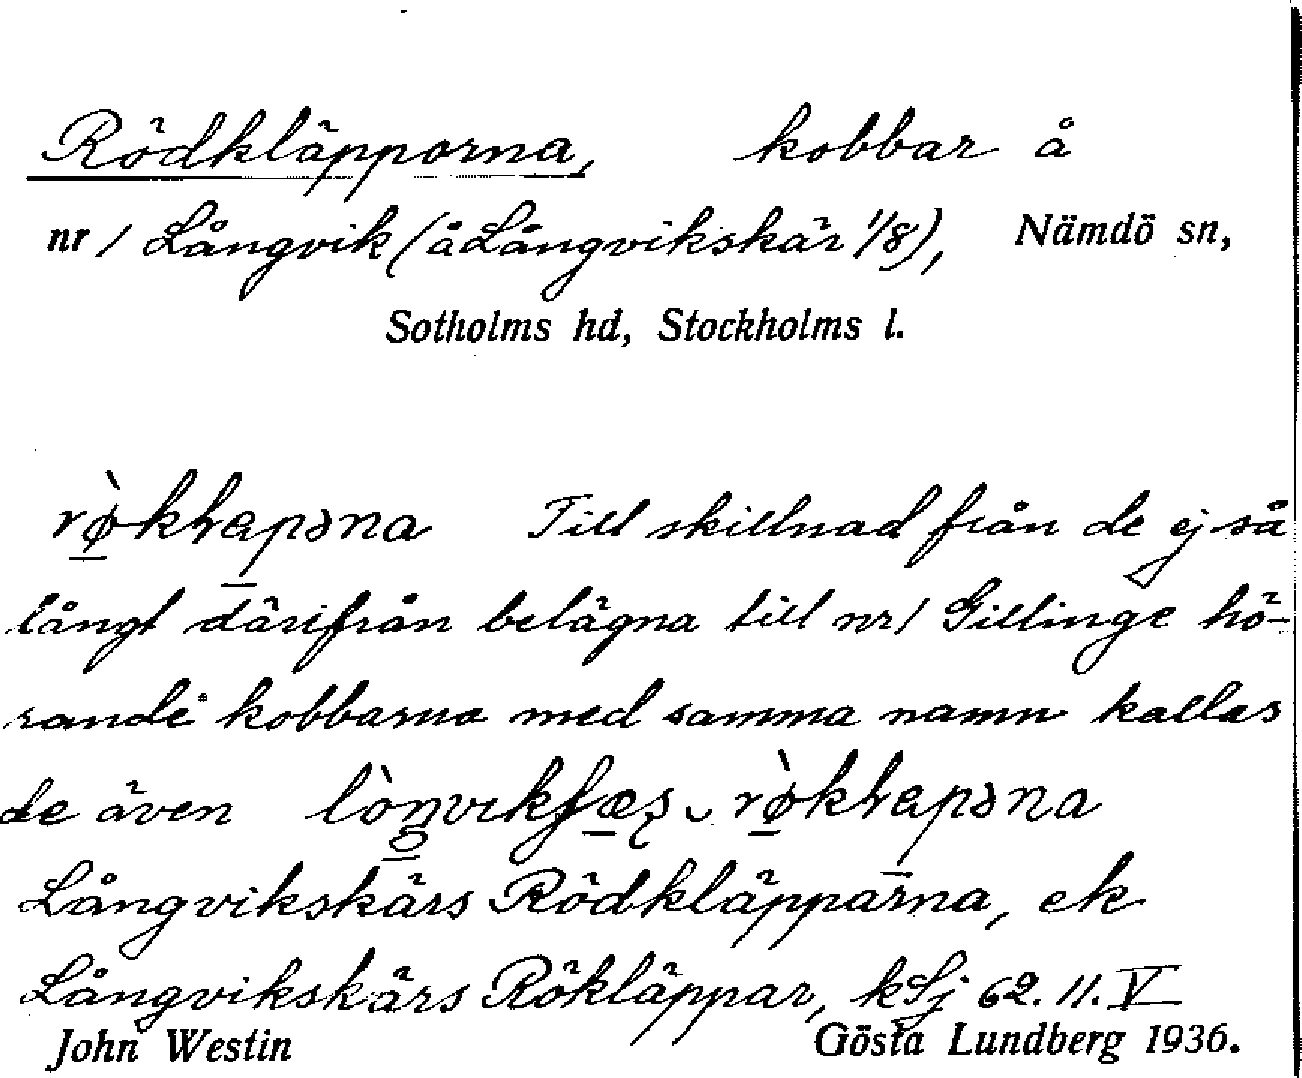 Rödkläpporna, kobbar å
nr 1 Långvik (å Långvikskär 1/8), Nämdö sn,
Sotholms hd, Stockholms l.
Till skillnad från de ej så
långt därifrån belägna till nr 1 Gillinge hö-
rande kobbarna med samma namn kallas
de även
Långvikskärs Rödkläpparna, ek
Långvikskärs Rökläppar, kSj 62. 11. V
John Westin Gösta Lundberg 1936.